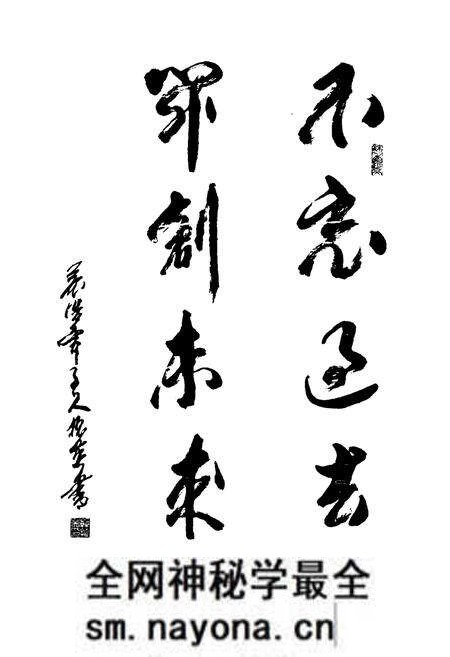 不忘過去
開創未来
全网神秘学最全
sm.nayona.cn